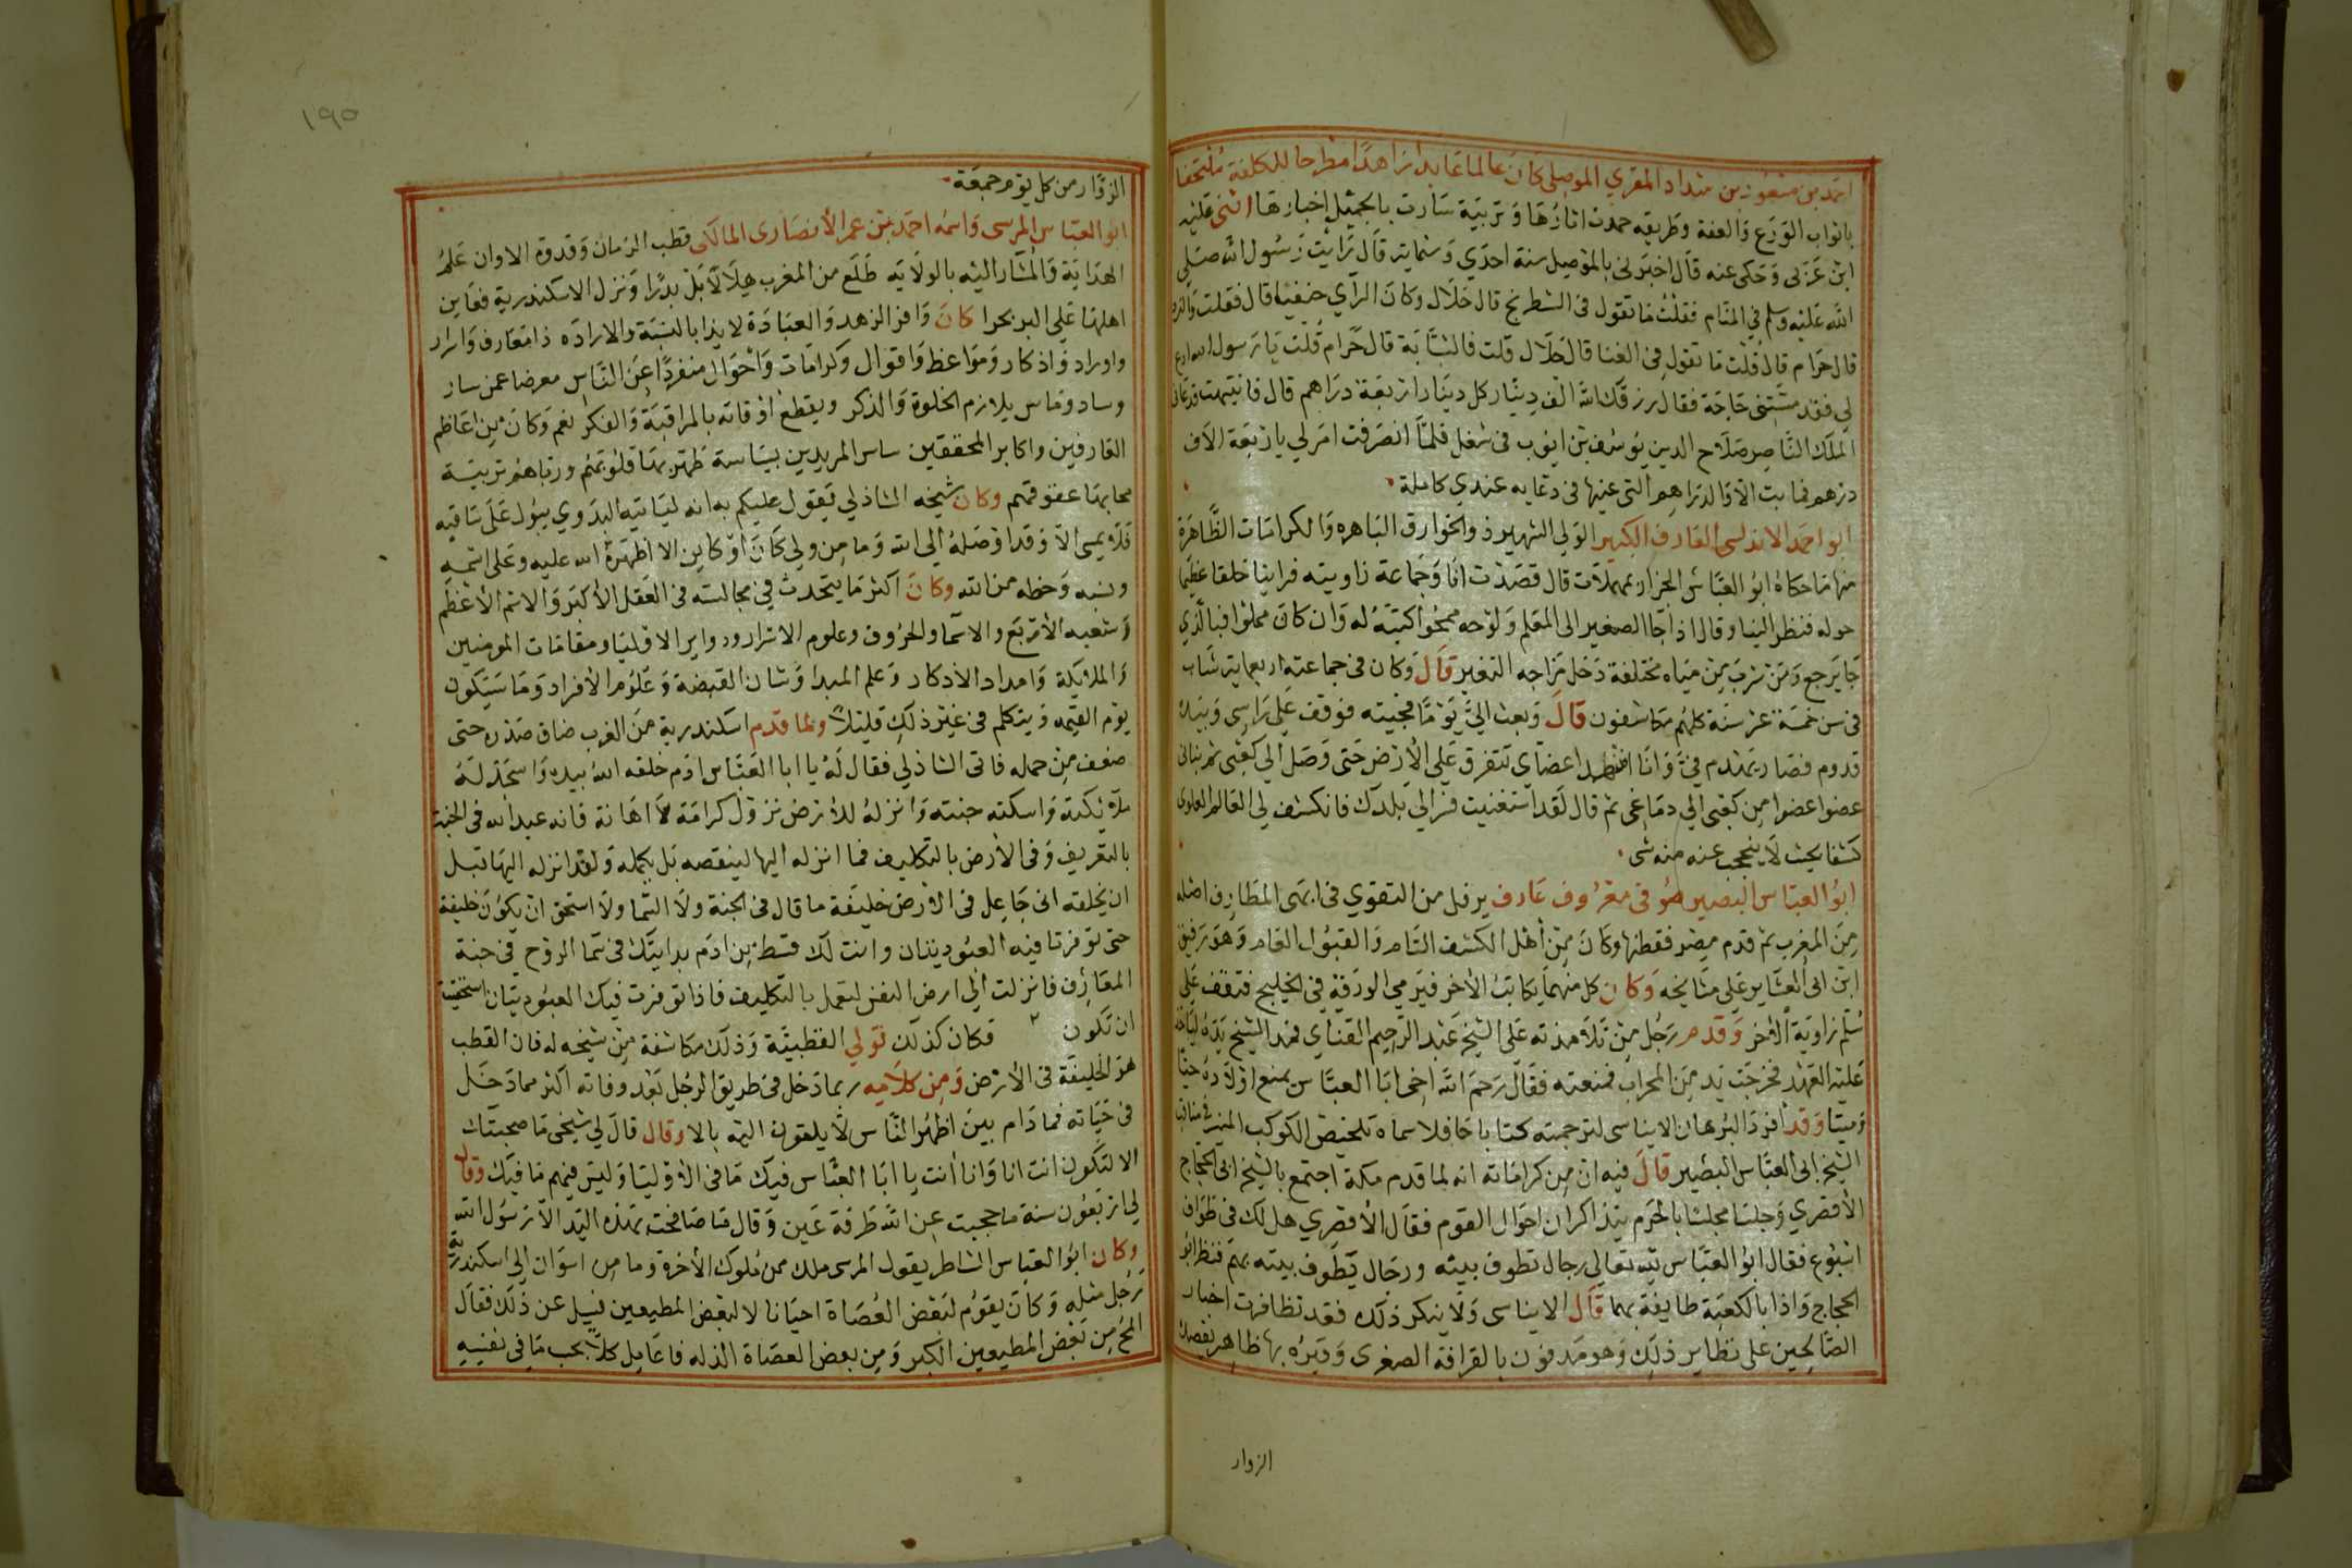 احمد بن مسعود بن شداد المقري الموصلى كان عالما عابدا زاهدا مطرحا للكلفة ملتحفا
باثواب الورع والعفة وطريقه حمدت اثارها وتربية سارت بالجميل اخبارها اثنى عليه
ابن عربى وحكى عنه قال اخبرنى بالموصل سنة احدي وستماية قال رايت رسول الله صلى
الله عليه وسلم في المنام فقلت ما تقول فى الشطرنج قال حلال وكان الرآي حنفيا قال فقلت والنرد
قال حرام قال قلت ما تقول فى الغنا قال حلال قلت فالشبابة قال حرام قلت يا رسول الله ادع
لى فقد مستنى حاجة فقال رزقك الله الف دينار كل دينار اربعة دراهم قال فانتبهت فدعانى
الملك الناصر صلاح الدين يوسف بن ايوب فى شغل فلما انصرفت امر لي باربعة الاف
درهم فما بت الا والدراهم التى عينها فى دعايه عندي كاملة
ابو احمد الاندلسى العارف الكبير الولى الشهير ذو الخوارق الباهره والكرامات الظاهرة
منها ما حكاه ابو العباس الحرار بمهملات قال قصدت انا وجماعة زاويته فراينا خلقا عظيما
حوله فنظر الينا وقال اذا جا الصغير الى المعلم ولوحه ممحوا كتبه له وان كان مملوا فبالذي
جا يرجع ومن شرب من مياه مختلفة دخل مزاجه التغير قال وكان فى جماعته اربعماية شاب
فى سن خمسة عشر سنة كلهم مكاشفون قال وبعث الى يوما فجيته فوقف على راسى وبيده
قدوم فصار يهدم في وانا اعضاى تتفرق على الارض حتى وصل الى كعبى ثم بنانى
عضوا عضوا من كعبى الى دماغى ثم قال لقد استغنيت فسر الى بلدك فانكشف لى العالم العلوى
كشفا بحيث لا ينحجب عنه منه شى
ابو العباس البصير صوفى معروف عارف يرفل من التقوي فى ابهى المطارف اصله
من المغرب ثم قدم مصر فقطنها وكان من اهل الكشف التام والقبول العام وهو رفيق
ابن ابى العشاير على مشايخه وكان كل منهما يكاتب الاخر فيرمى الورقة فى الخليج فتقف على
سلم زاوية الاخر وقدم رجل من تلامذته على الشيخ عبد الرحيم القناي فمد الشيخ يده لياخذ
عليه العهد فخرجت يد من المحراب فمنعته فقال رحم الله اخى ابا العباس يمنع اولاده حيا
وميتا وقد افرد البرهان الابناسى لترجمته كتابا حافلا سماه تلخيص الكوكب المنير فى مناقب
الشيخ ابى العباس البصير قال فيه ان من كراماته انه لما قدم مكة اجتمع بالشيخ ابى الحجاج
الاقصري وجلسا مجلسا بالحرم يتذاكران احوال القوم فقال الاقصري هل لك فى طواف
اسبوع فقال ابو العباس لله تعالى رجال تطوف بيته ورجال يطوف بيته بهم فنظر ابو
الحجاج واذا بالكعبة طايفة بهما قال الابناسى ولا ينكر ذلك فقد تظافرت اخبار
الصالحين على نظاير ذلك وهو مدفون بالقرافة الصغرى وقبره بها ظاهر يقصده
الزوار
١٩٥
الزوار من كل يوم جمعة
ابو العباس المرسى واسمه احمد بن عمر الانصارى المالكى قطب الزمان وقدوة الاوان علم
الهداية والمشار اليه بالولايه طلع من المغرب هلالا بل بدرا ونزل الاسكندرية فعاين
اهلها على البر بحرا كان وافر الزهد والعبادة لايذا بالنسبة والاراده ذا معارف واسرار
واوراد واذكار ومواعظ واقوال وكرامات واحوال منفردا عن الناس معرضا عمن سار
وساد وماس يلازم الخلوة والذكر ويقطع اوقاته بالمراقبة والفكر نعم وكان من اعاظم
العارفين واكابر المحققين ساس المريدين بسياسة طهر بها قلوبهم ورباهم تربية
محا بها عقوقهم وكان شيخه الشاذلي يقول عليكم به انه لياتيه البدوي يبول على ساقيه
فلا يمسى الا وقد اوصله الى الله وما من ولي كان او كاين الا اظهره الله عليه وعلى اسمه
ونسبه وحظه من الله وكان اكثر ما يتحدث في مجالسه فى العقل الاكبر والاسم الاعظم
وشعبه الاربع والاسما والحروف وعلوم الاسرار ودواير الاوليا ومقامات المومنين
والملايكة وامداد الاذكار وعلم المبدا وشان القبضة وعلوم الافراد وما سيكون
يوم القيمه ويتكلم فى غير ذلك قليلا ولما قدم اسكندرية من الغرب ضاق صدره حتى
ضعف من حمله فاتى الشاذلي فقال له يا ابا العباس ادم خلقه الله بيده واسجد له
ملايكته واسكنه جنته وانزله للارض نزول كرامة لا اهانة فانه عبد الله فى الجنة
بالتعريف وفى الارض بالتكليف فما انزله اليها لينقصه بل يكمله ولقد انزله اليها قبل
ان يخلقه انى جاعل فى الارض خليفة ما قال فى الجنة ولا السما ولا استحق ان يكون خليفة
حتى توفرتا فيه العبوديتان وانت لك قسط من ادم بدايتك فى سما الروح فى جنة
المعارف فانزلت الى ارض النفس لتعمل بالتكليف فاذا توفرت فيك العبوديتان استحقيت
ان تكون فكان كذلك تولي القطبية وذلك مكاشفة من شيخه له فان القطب
هو الخليفة فى الارض ومن كلامه ربما دخل فى طريق الرجل بعد وفاته اكثر مما دخل
فى حياته فما دام بين اظهر الناس لا يلقون اليه بالا وقال قال لي شيخى ما صحبتك
الا لتكون انت انا وانا انت يا ابا العباس فيك ما فى الاوليا وليس فيهم ما فيك وقال
لي اربعون سنة ما حجبت عن الله طرفة عين وقال ما صافحت بهذه اليد الا رسول الله
وكان ابو العباس الشاطر يقول المرسى ملك من ملوك الاخرة وما من اسوان الى اسكندرية
رجل مثله وكان يقوم لبعض العصاة احيانا لا لبعض المطيعين فسيل عن ذلك فقال
المح من بعض المطيعين الكبر ومن بعض العصاة الذله فاعامل كلا بحسب ما فى نفسه